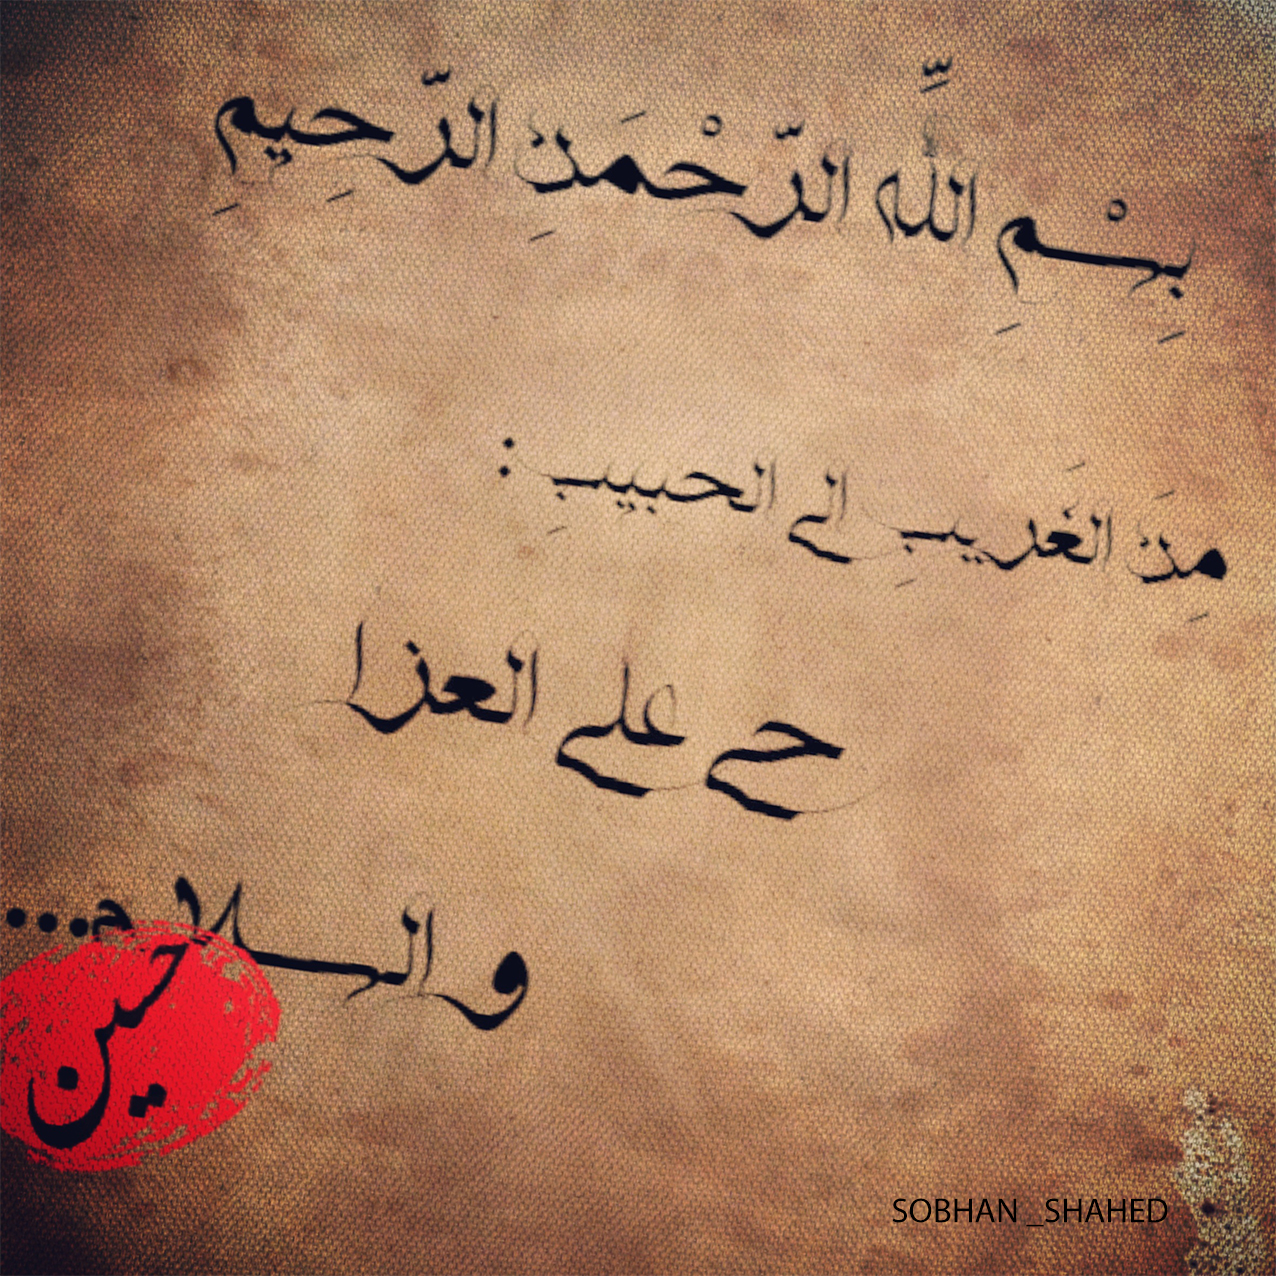 بِسْمِ اللَّهِ الرَّحْمَنِ الرَّحِيمِ
مِنَ الغَريبِ الي الحبيبِ :
حي علي العزا
و السلام...
حسین
SOBHAN _SHAHED